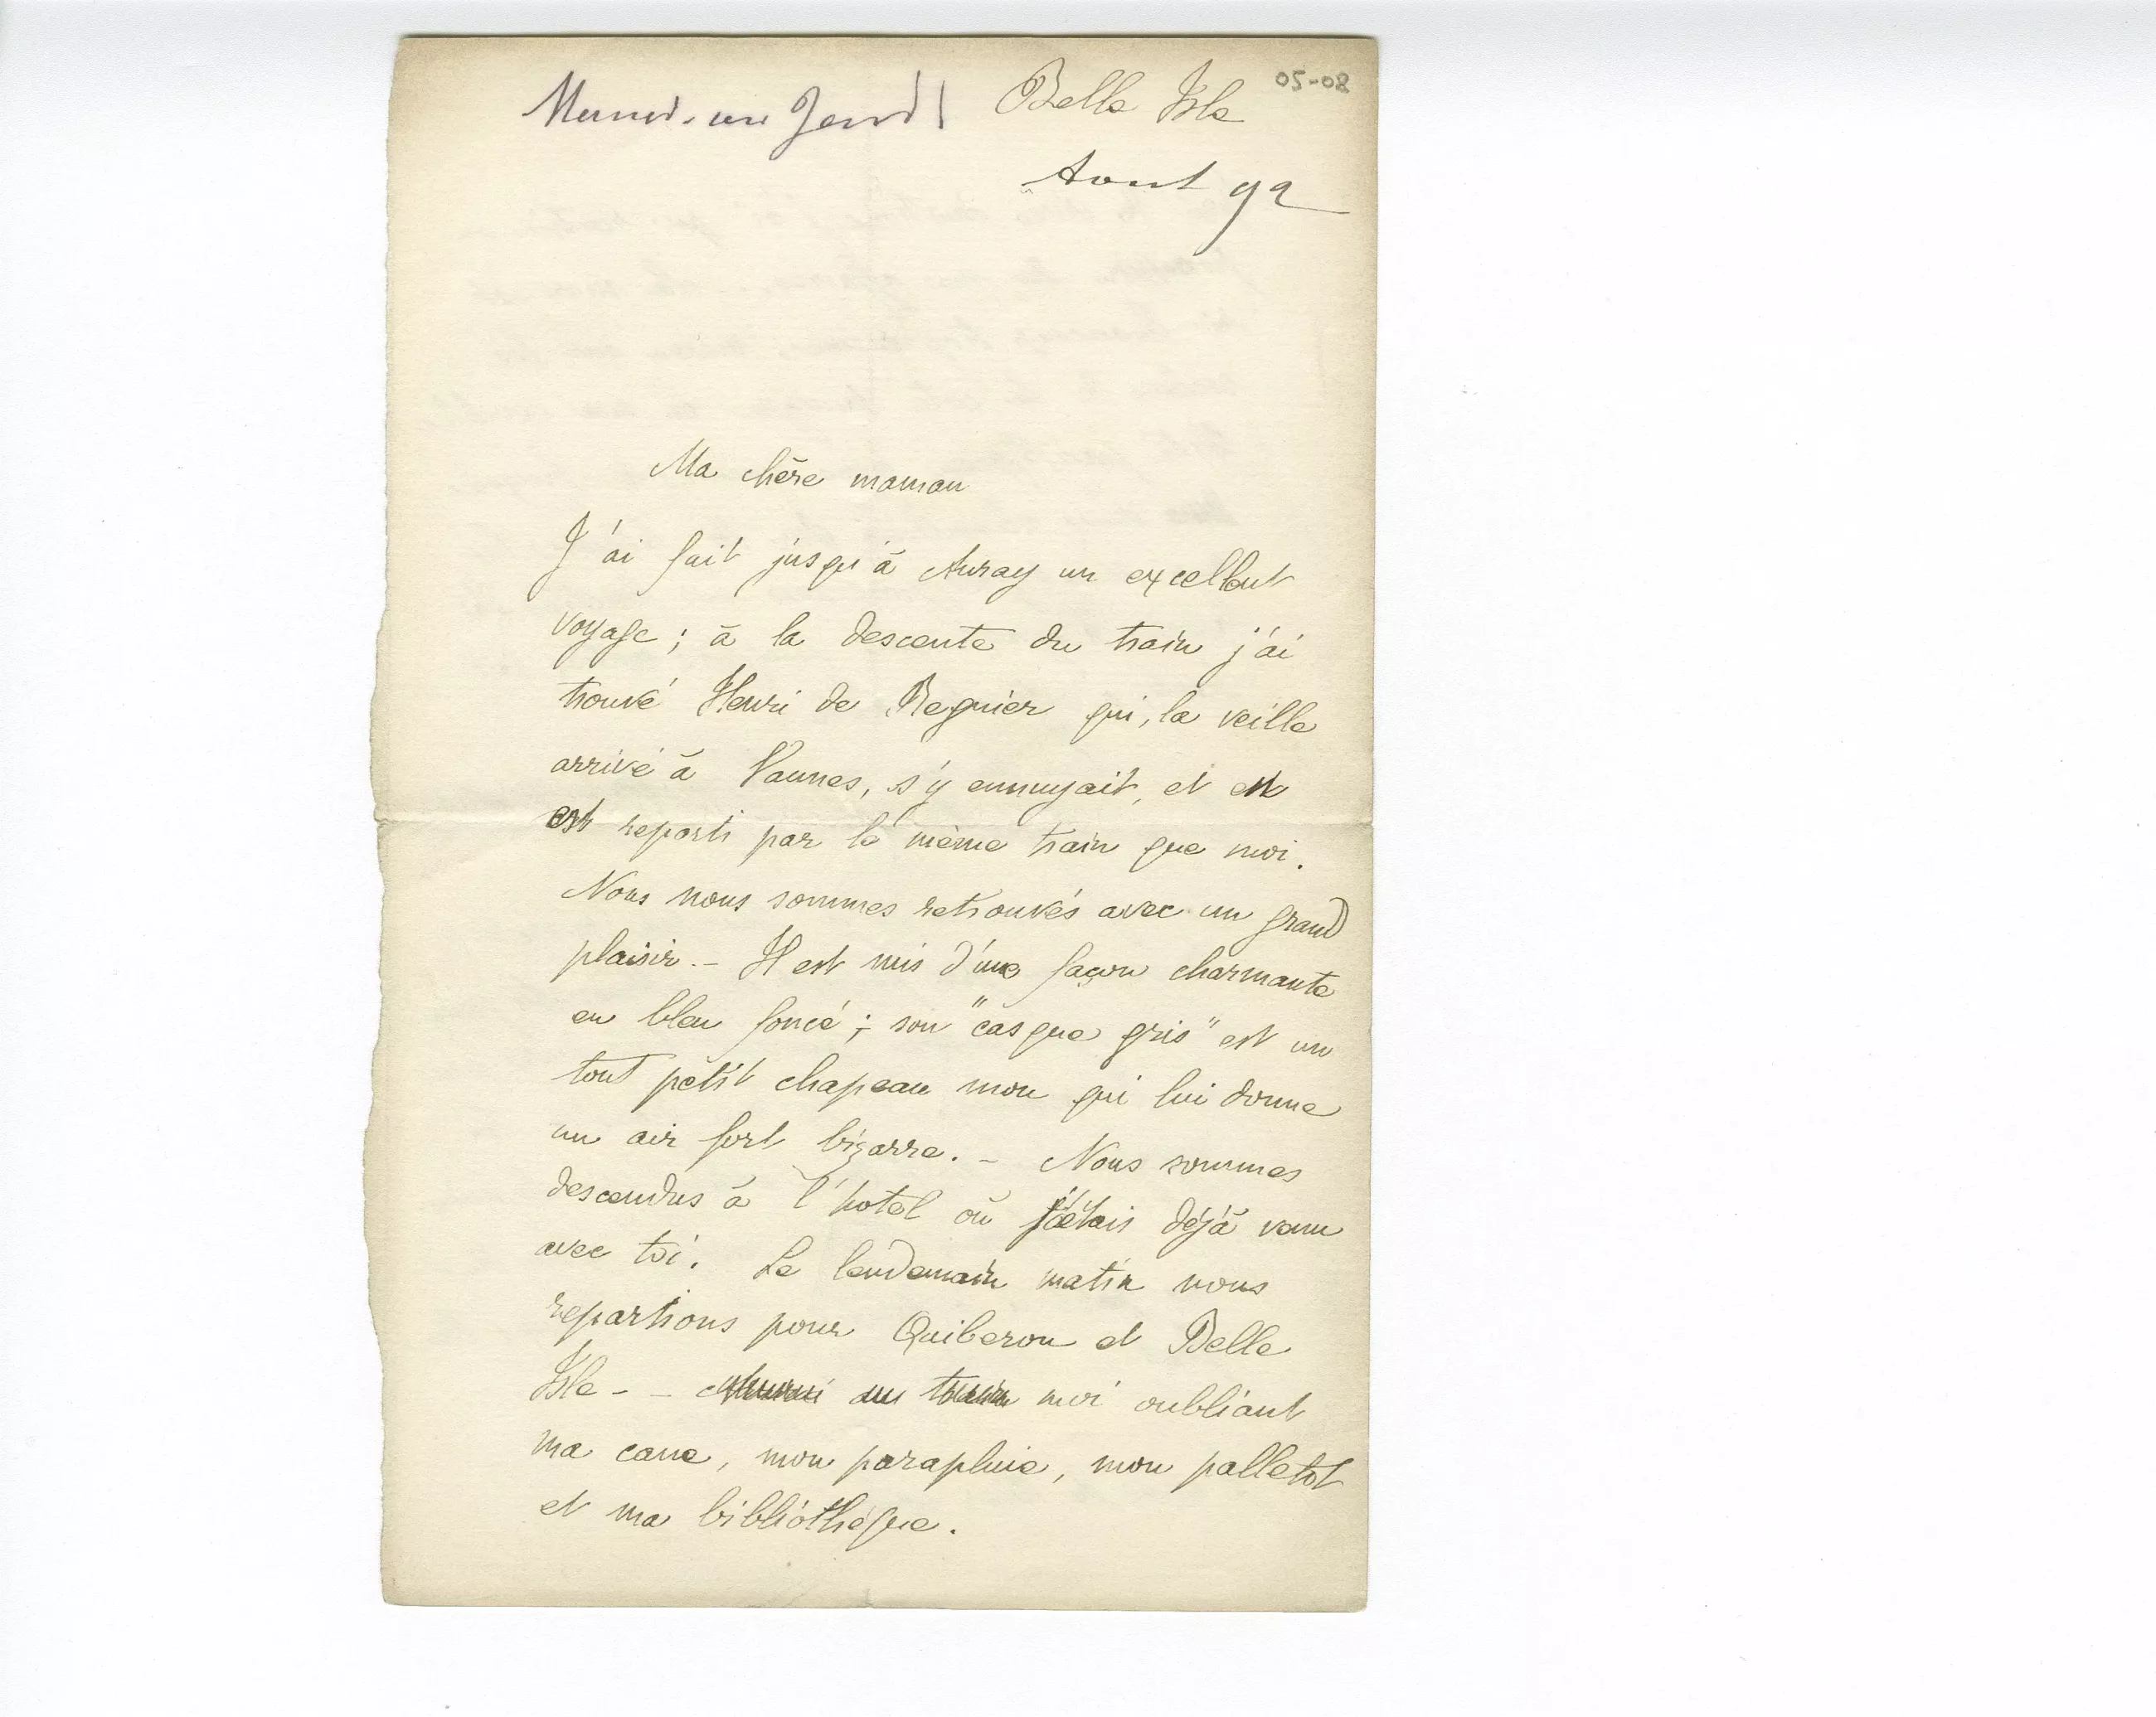 05-08
Belle Isle
Aout 92
Ma chère maman
J'ai fait jusqu'à Auray un excellent
voyage ; à la descente du train j'ai
trouvé Henri de Regnier qui, la veille
arrivé à Vannes, s'y ennuyait, et en
est reparti par le même train que moi.
Nous nous sommes retrouvés avec un grand
plaisir. – Il est mis d'une façon charmante
en bleu foncé ; son "casque gris" est un
tout petit chapeau mou qui lui donne
un air fort bizarre. – Nous sommes
descendus à l'hotel où j'étais déjà venu
avec toi. Le lendemain matin nous
repartions pour Quiberon et Belle
Isle – – moi oubliant
ma cane, mon parapluie, mon palletot
et ma bibliothèque.